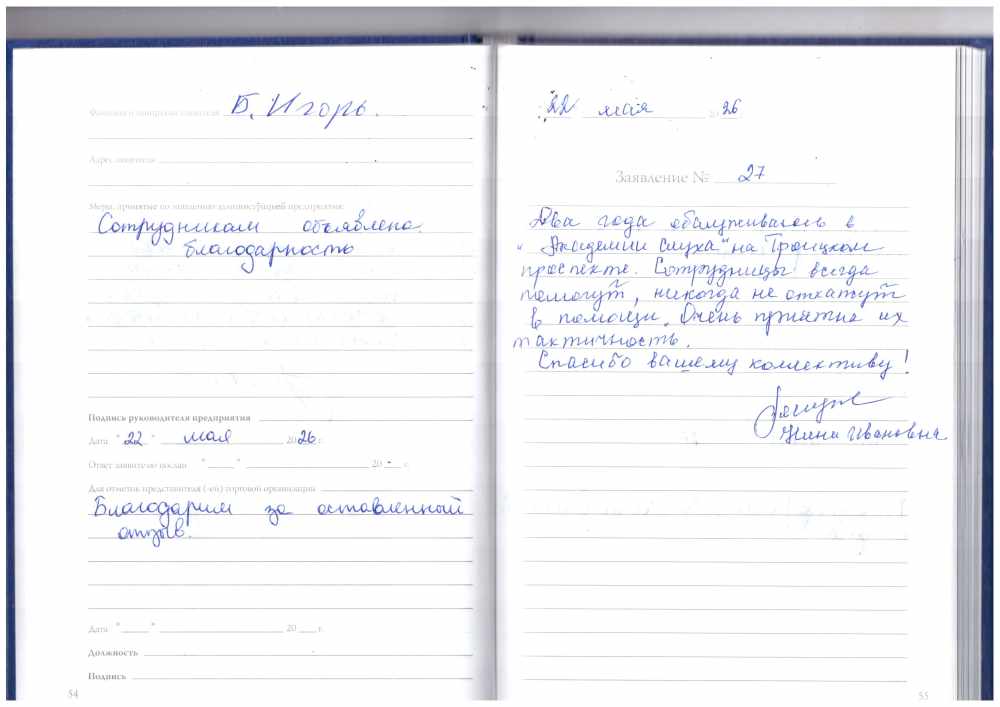 Фамилия и инициалы заявителя Б. Игорь.
Адрес заявителя
Меры, принятые по заявлению администрацией предприятия:
Сотрудникам объявлена
благодарность
Подпись руководителя предприятия
Дата "22" мая 2026 г.
Ответ заявителю послан " " 20 г.
Для отметок представителя (-ей) торговой организации
Благодарим за оставленный
отзыв.
Дата " " 20 г.
Должность
Подпись
54
"22" мая 2026
Заявление № 27
Два года обслуживаюсь в
"Академии слуха" на Троицком
проспекте. Сотрудницы всегда
помогут, никогда не откажут
в помощи. Очень приятна их
тактичность.
Спасибо вашему коллективу!
Ивановна
55